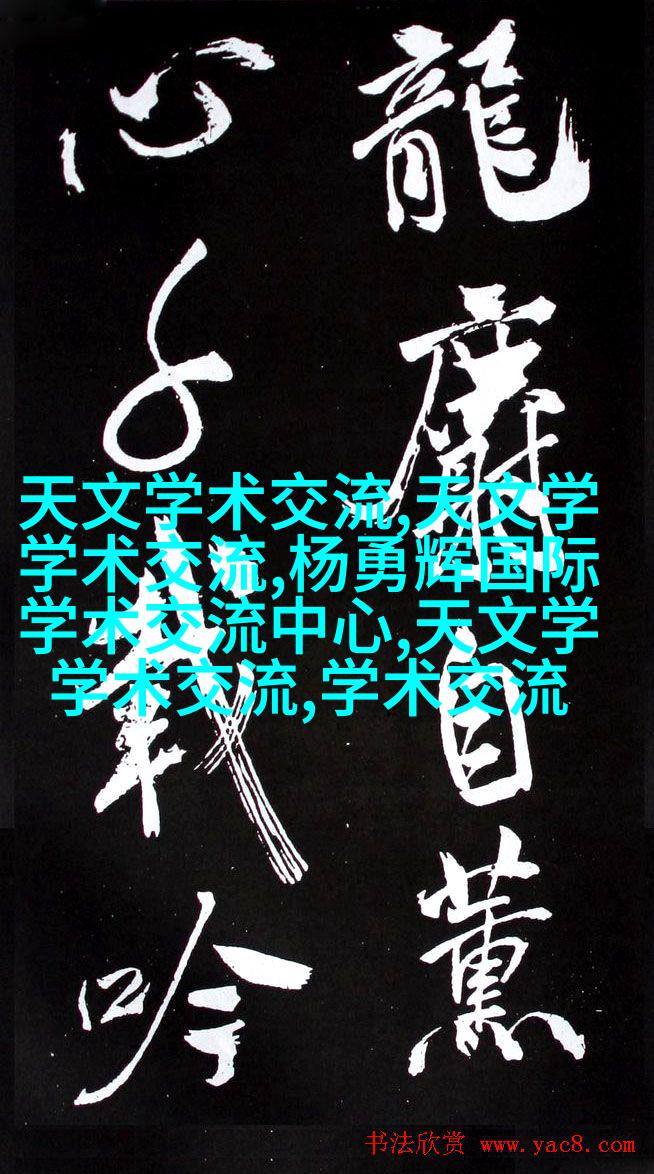 龍自薰
心千載吟
天文学术交流,天文学
学术交流,杨勇辉国际
学术交流中心,天文学
学术交流,学术交流
书法欣赏 www.yac8.com